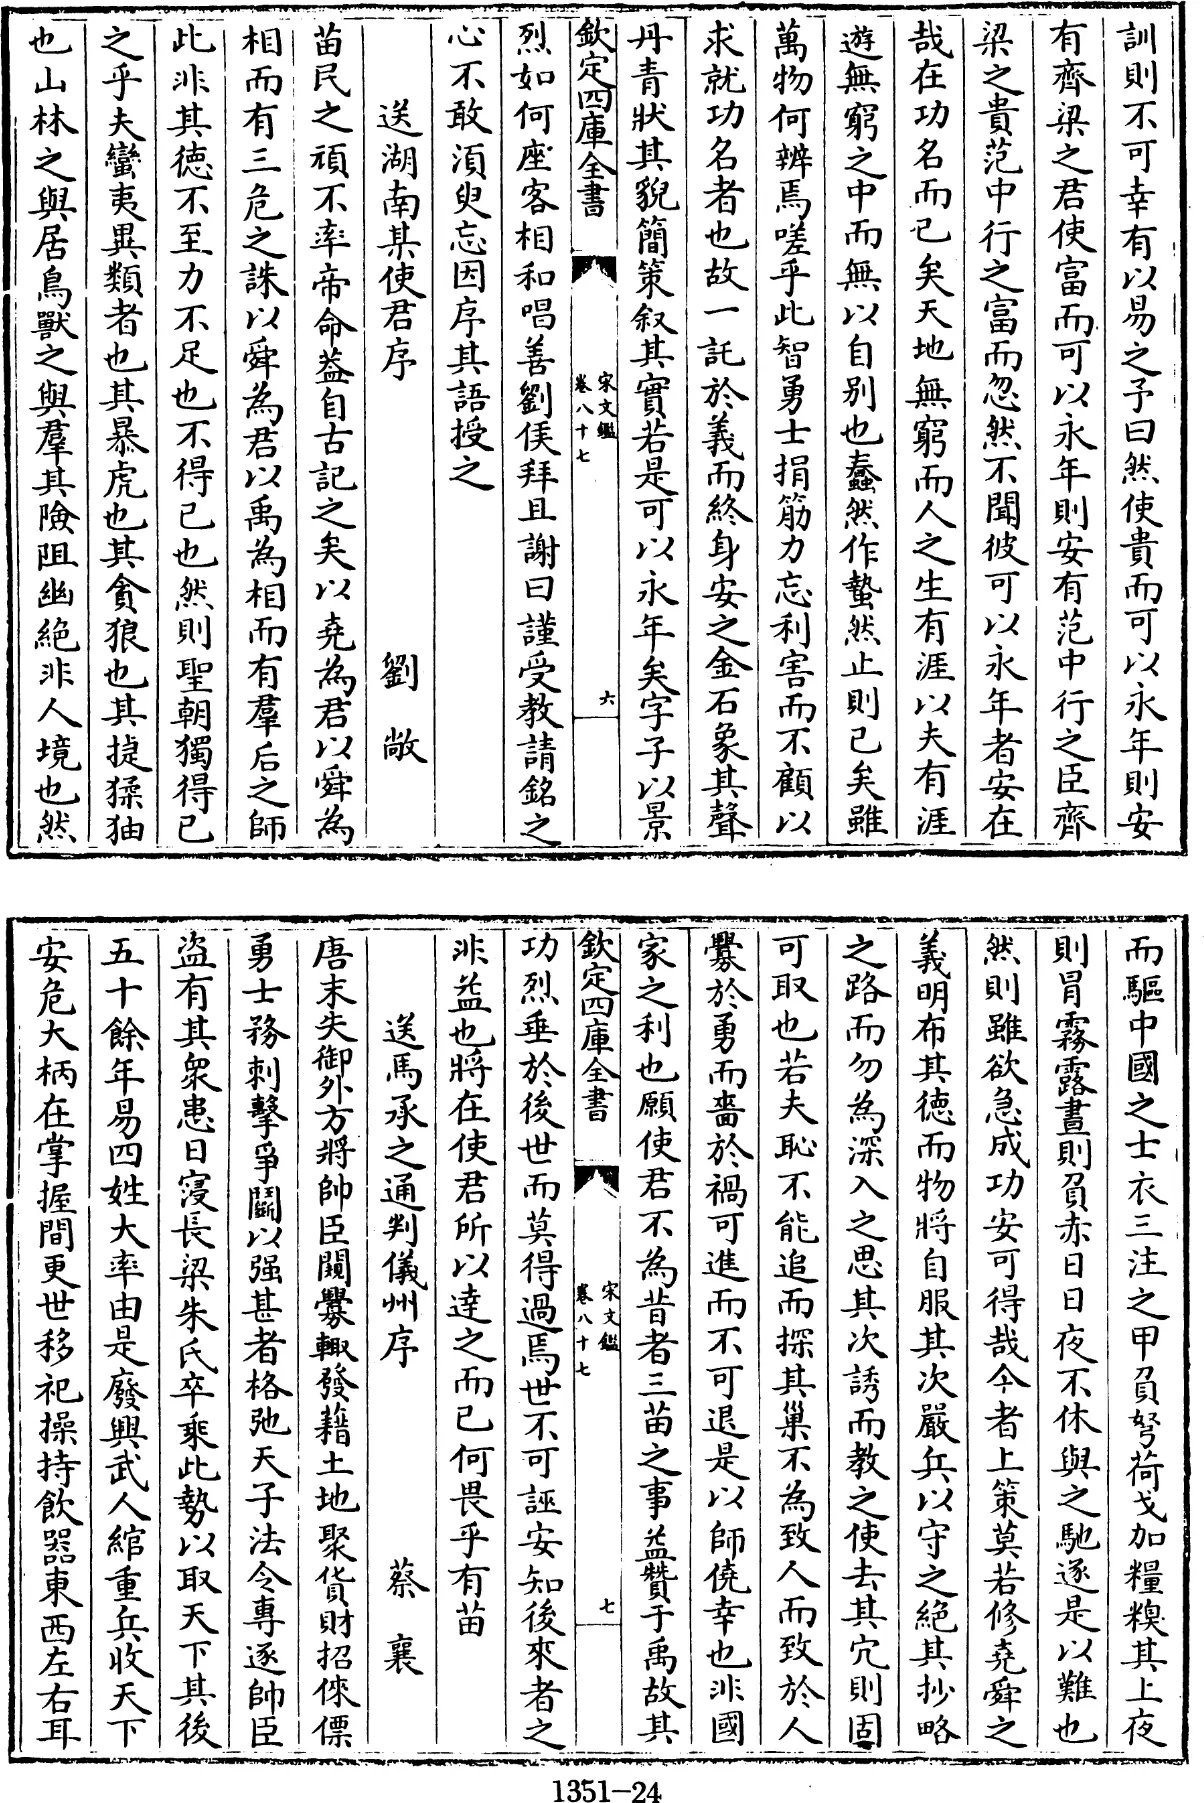 訓則不可幸有以易之予曰然使貴而可以永年則安
有齊梁之君使富而可以永年則安有范中行之臣齊
梁之貴范中行之富而忽然不聞彼可以永年者安在
哉在功名而已矣天地無窮而人之生有涯以夫有涯
遊無窮之中而無以自别也蠢然作蟄然止則已矣雖
萬物何辨焉嗟乎此智勇士捐筋力忘利害而不顧以
求就功名者也故一託於義而終身安之金石象其聲
丹青狀其貌簡策叙其實若是可以永年矣字子以景
欽定四庫全書
宋文鑑
卷八十七
六
烈如何座客相和唱善劉侯拜且謝曰謹受教請銘之
心不敢湏臾忘因序其語授之
送湖南某使君序
劉敞
苗民之頑不率帝命益自古記之矣以堯為君以舜為
相而有三危之誅以舜為君以禹為相而有羣后之師
此非其德不至力不足也不得已也然則聖朝獨得已
之乎夫蠻夷異類者也其暴虎也其貪狼也其捷猱狖
也山林之與居鳥獸之與羣其險阻幽絶非人境也然
而驅中國之士衣三注之甲負弩荷戈加糧糗其上夜
則冒霧露晝則負赤日日夜不休與之馳逐是以難也
然則雖欲急成功安可得哉今者上策莫若修堯舜之
義明布其德而物將自服其次嚴兵以守之絶其抄略
之路而勿為深入之思其次誘而教之使去其穴則固
可取也若夫恥不能追而探其巢不為致人而致於人
釁於勇而嗇於禍可進而不可退是以師僥幸也非國
家之利也願使君不為昔者三苗之事益贊于禹故其
欽定四庫全書
宋文鑑
卷八十七
七
功烈垂於後世而莫得過焉世不可誣安知後來者之
非益也將在使君所以達之而已何畏乎有苗
送馬承之通判儀州序
蔡襄
唐末失御外方將帥臣闚釁輙發藉土地聚貨財招倈僄
勇士務刺擊爭鬭以强甚者格弛天子法令專逐帥臣
盜有其衆患日寖長梁朱氏卒乘此勢以取天下其後
五十餘年易四姓大率由是廢興武人綰重兵收天下
安危大柄在掌握間更世移祀操持飲器東西左右耳
1351-24